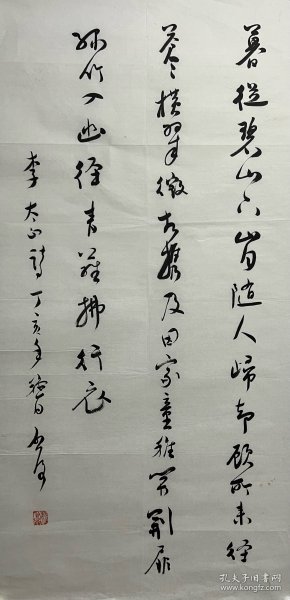 暮從碧山下山月随人歸却顧所来徑
蒼蒼橫翠微相攜及田家童稚開荆扉
綠竹入幽徑青蘿拂行衣
李太白詩丁亥年
孔夫子旧书网